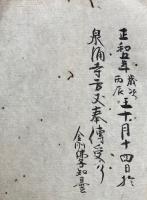 正和五年歳次丙辰壬十月十四日於
泉涌寺方丈奉傳受了
金剛佛子知